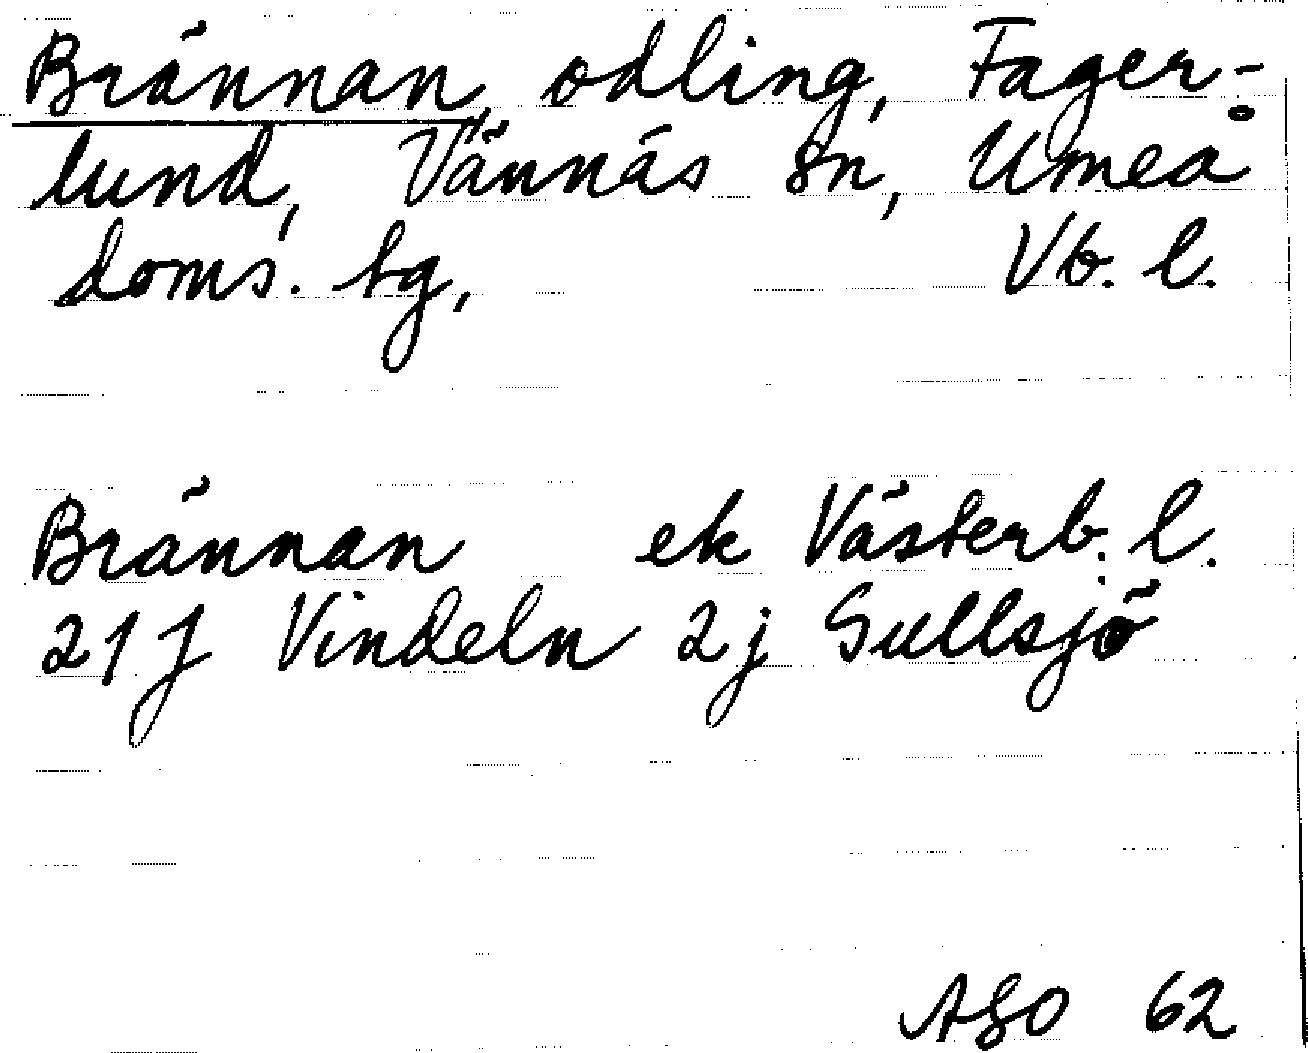 Brännan, odling, Fager-
lund, Vännäs sn, Umeå
doms. sg, Vb. l.
Brännan ek Västerb. l.
21J Vindeln 2j Sullsjö
ASO 62